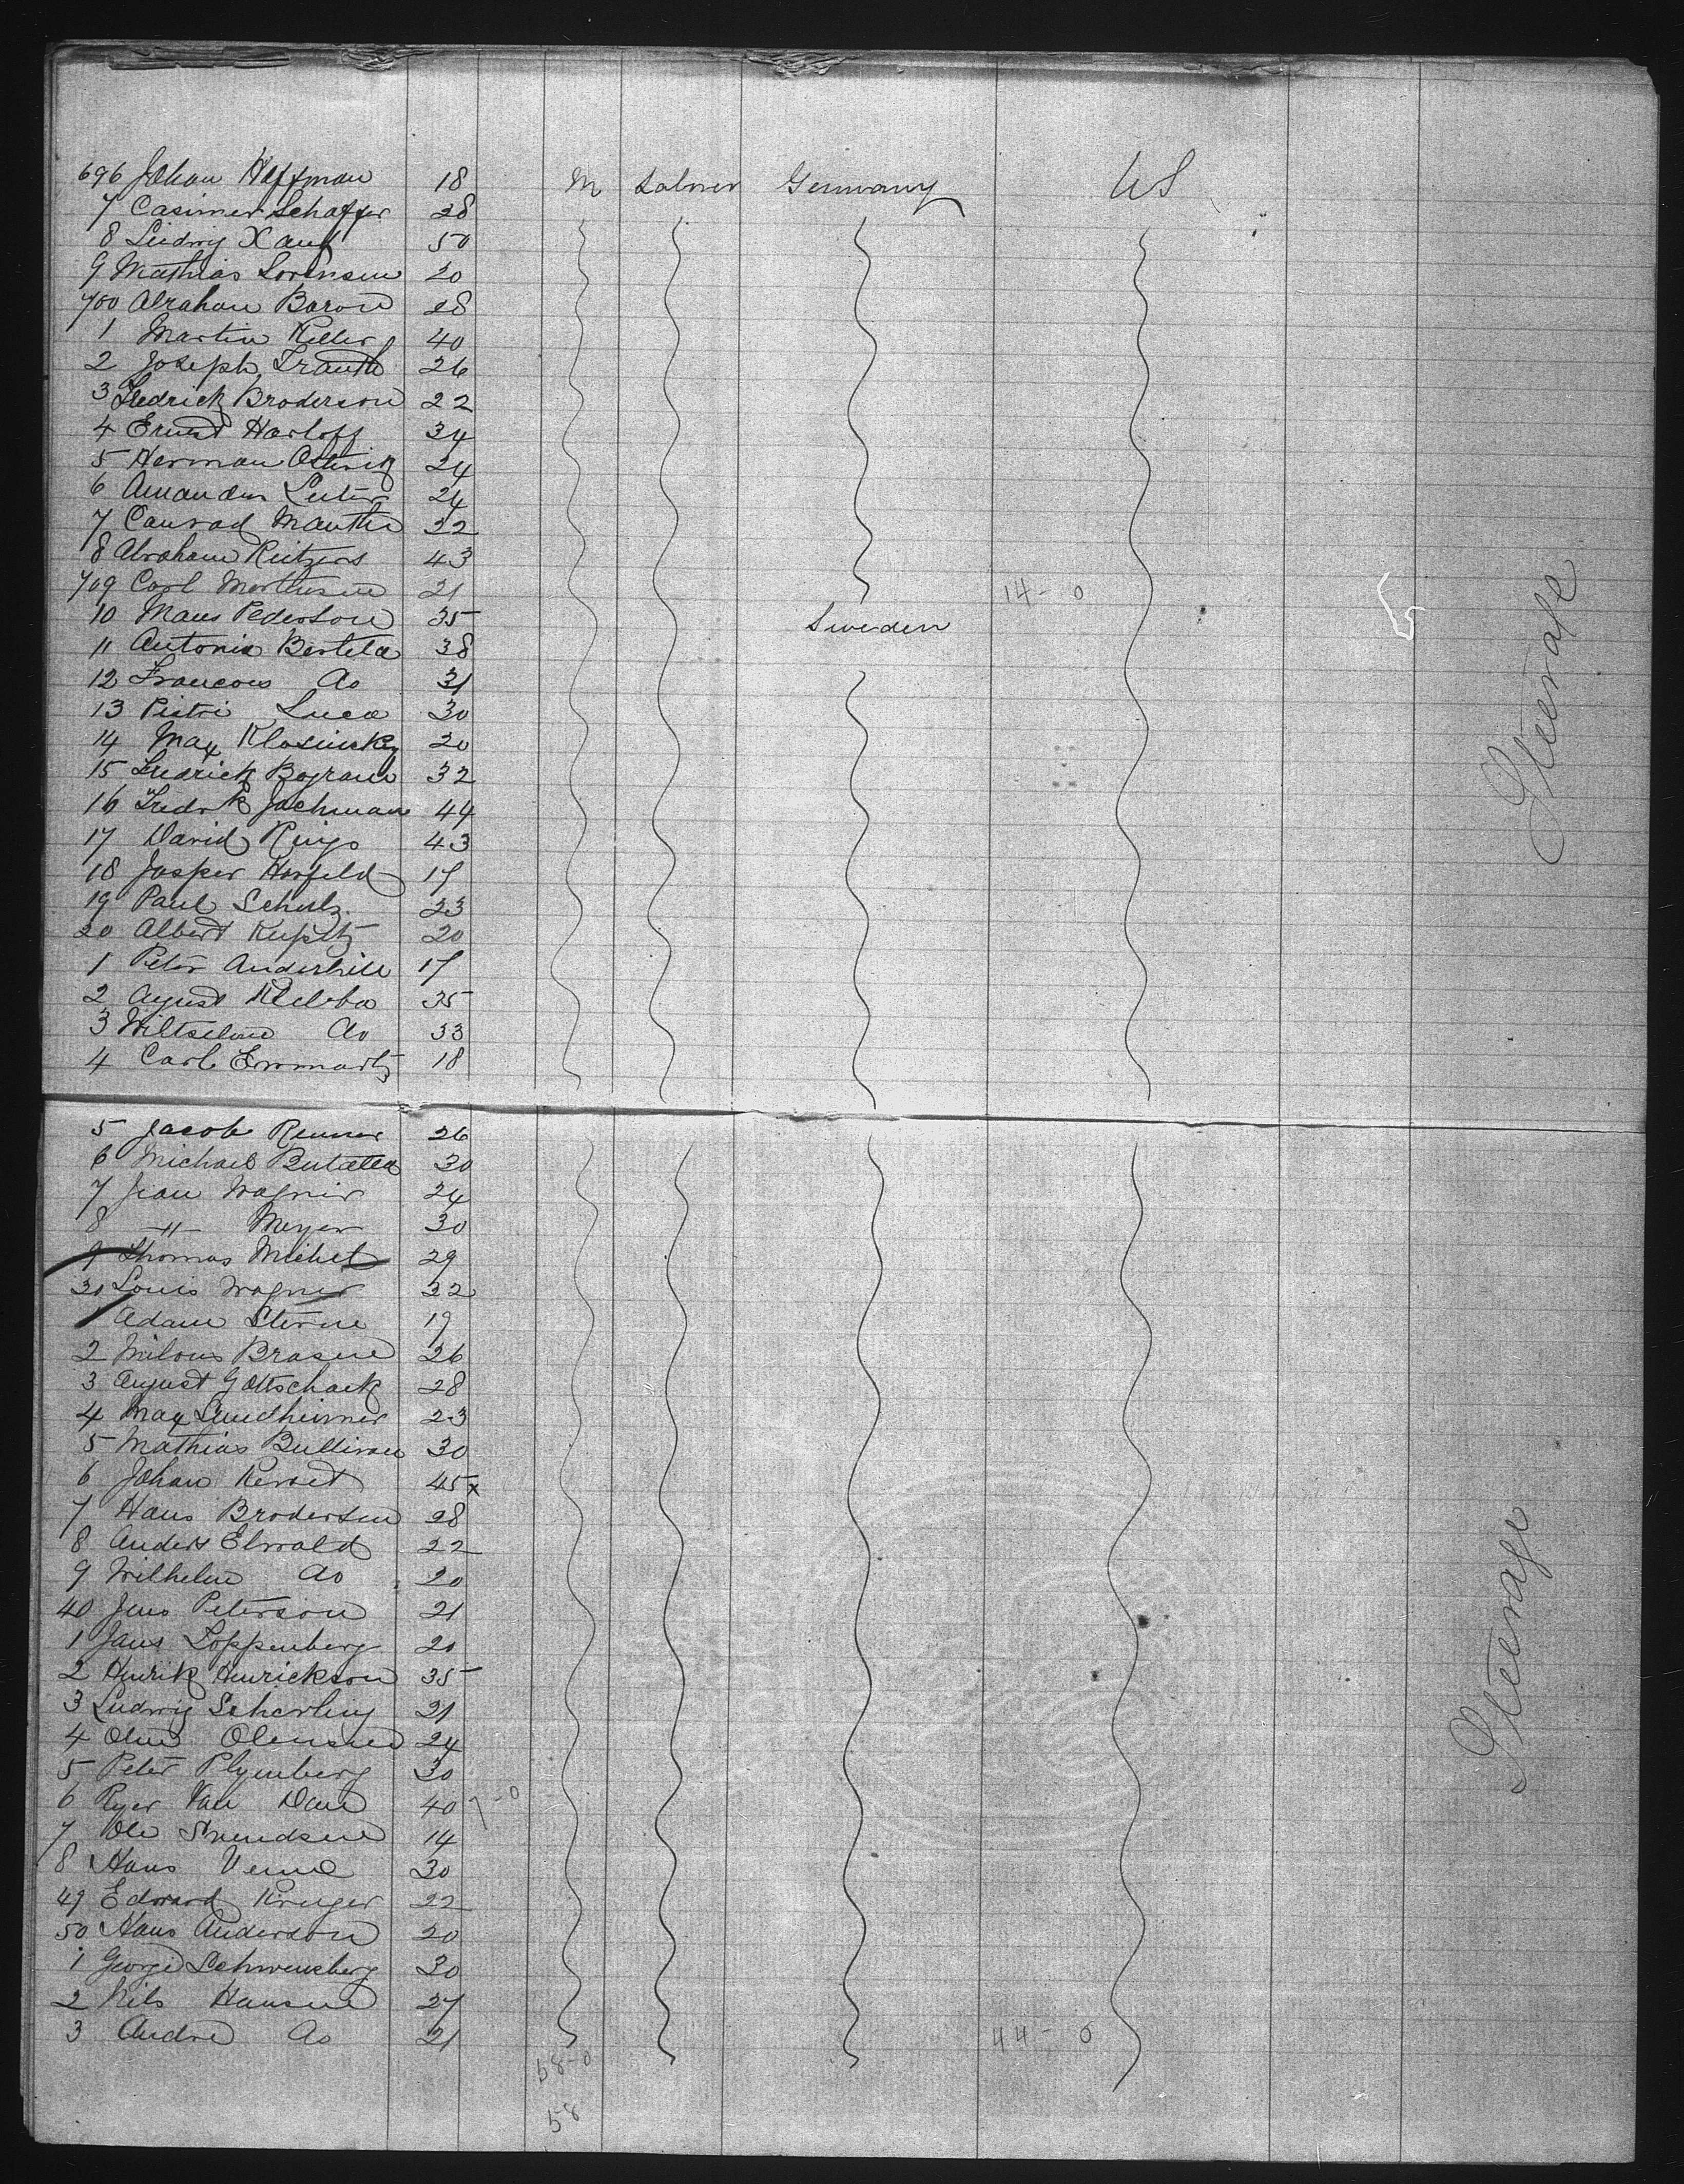 696 Johan Hoffman 18 M Labrer Germany US
7 Casimer Schaffer 28
8 Ludwig Xauf 50
9 Mathias Sorensen 20
700 Abraham Baron 28
1 Martin Keller 40
2 Joseph Trauth 26
3 Fredrick Broderson 22
4 Ernst Harloff 34
5 Herman 24
6 Amandus 24
7 Conrad Manthe 32
8 Abraham 43
709 Carl Mortensen 21 14 - 0
10 Mans Pederson 35 Sweden
11 Antonio Berteta 38
12 Francois do 31
13 Pietri Luca 30
14 Max Klosinsky 20
15 Fredrick Bograw 32
16 Fredrk Jachman 44
17 David Rings 43
18 Jasper Horfeld 17
19 Paul Schulz 23
20 Albert Kupitz 20
1 Peter Anderhill 17
2 August 35
3 do 33
4 Carl 18
Steerage
5 Jacob Renner 26
6 Michael 30
7 Jean Wagner 24
8 -"- Meyer 30
9 Thomas Michel 29
30 Louis Wagner 22
1 Adam Sterne 19
2 Brasne 26
3 August Gottschack 28
4 Max 23
5 Mathias 30
6 Johan 45 x
7 Hans Brodersen 28
8 Anders Elwald 22
9 Wilhelm do 20
40 Jens Peterson 21
1 Jans Loppenberg 20
2 Henrik Henrickson 35
3 Ludwig Scherling 21
4 Olensen 24
5 Peter Plymberg 30
6 Van Dam 40 7-0
7 Ole Svendsen 14
8 Hans 30
49 Edward Kruger 22
50 Hans Anderson 20
1 George Schwensberg 30
2 Nils Hansen 27
3 Andre do 21 44 - 0
58-0
58
Steerage